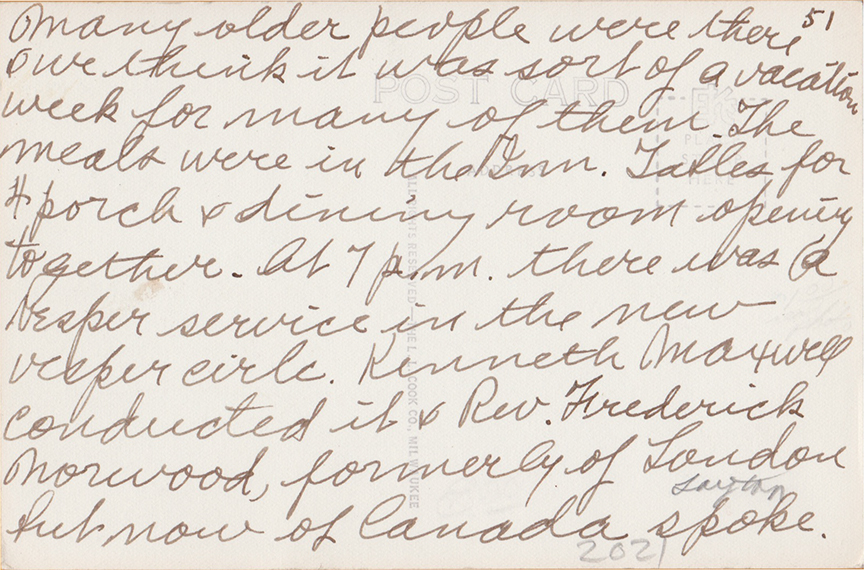 51
many older people were there
& we think it was sort of a vacation
week for many of them. The
meals were in the Inn. Tables for
4 porch & dining room opening
together. At 7 p.m. there was a
Vesper service in the new
vesper cirlc. Kenneth Maxwell
conducted it & Rev. Frederick
Norwood, formerly of London
but now of Canada spoke.
POST CARD
ADDRESS
PLACE
STAMP
HERE
ALL RIGHTS RESERVED—THE L. L. COOK CO., MILWAUKEE
Layton
2021